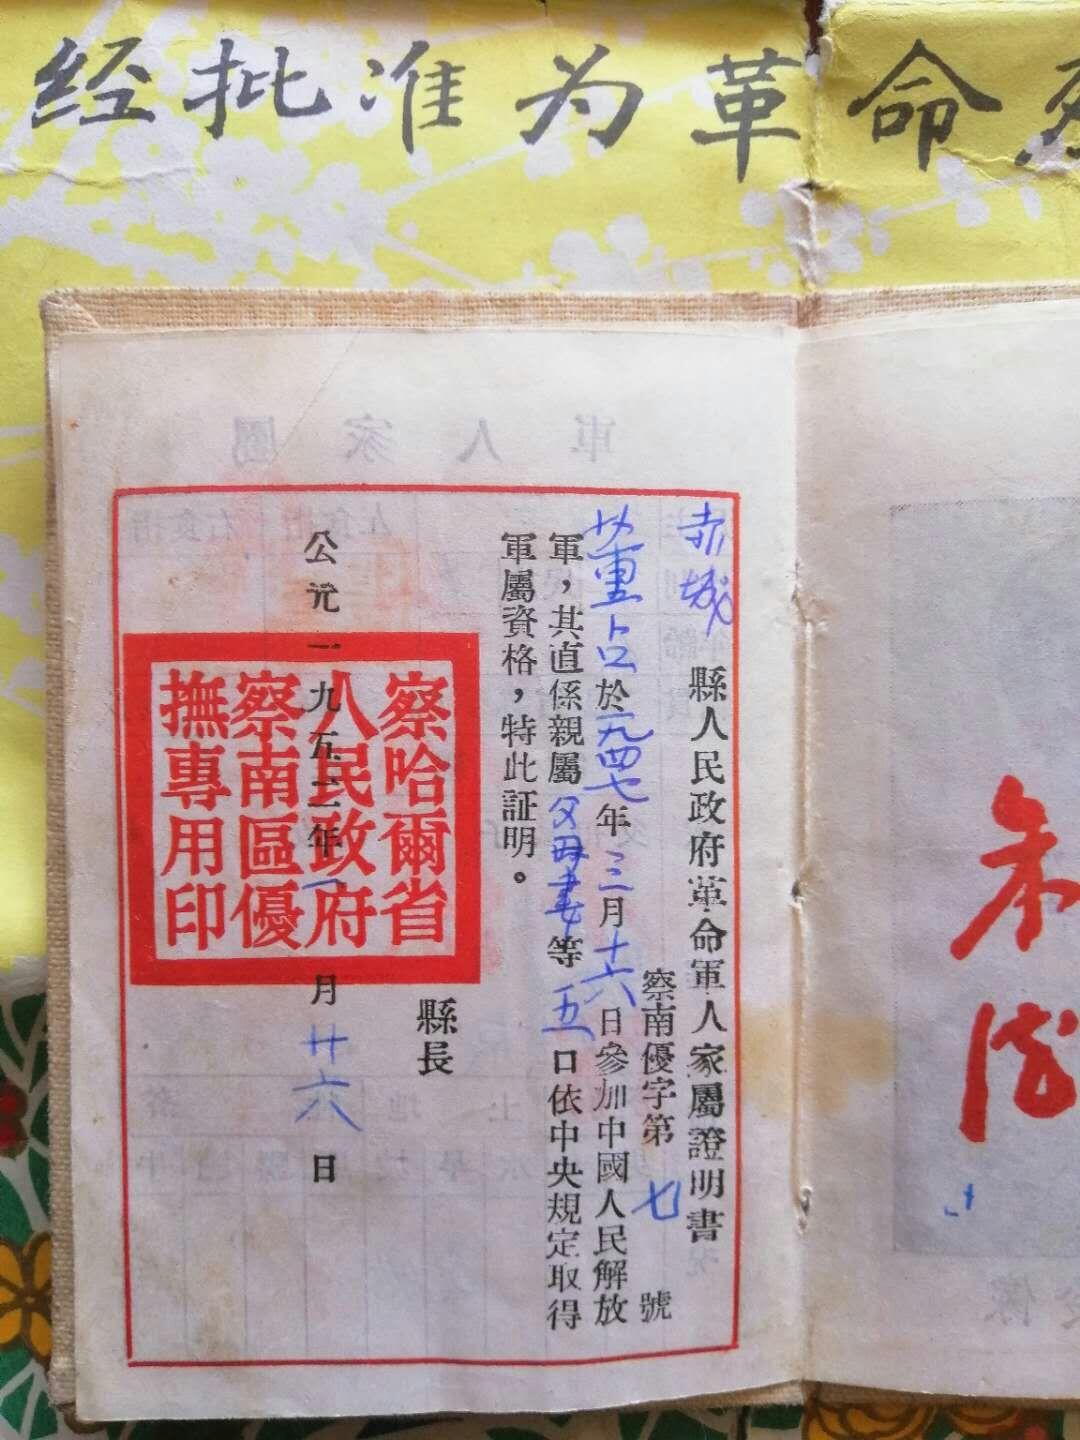 经批准为革命
赤城縣人民政府革命軍人家屬證明書
察南優字第七號
董占於一九四七年三月十六日參加中國人民解放
軍，其直係親屬父母妻等五口依中央規定取得
軍屬資格，特此証明。
縣長
公元一九五二年一月廿六日
察哈爾省
人民政府
察南區優
撫專用印
軍人家屬
朱德